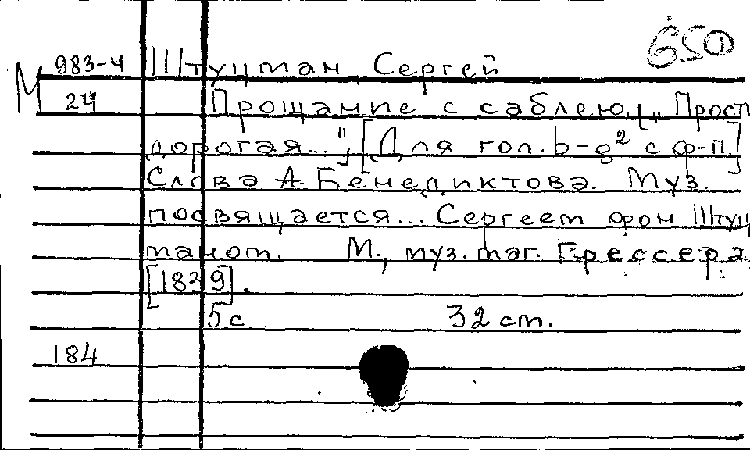 650
М 983-4 Штуцман, Сергей
24 Прощание с саблею. „Прост
дорогая..."; [Для гол. b-g² с ф-п.]
Слова А. Бенедиктова. Муз.
посвящается... Сергеем фон Штуц
маном. М., муз. маг. Грессера
[1839].
5 с. 32 см.
184